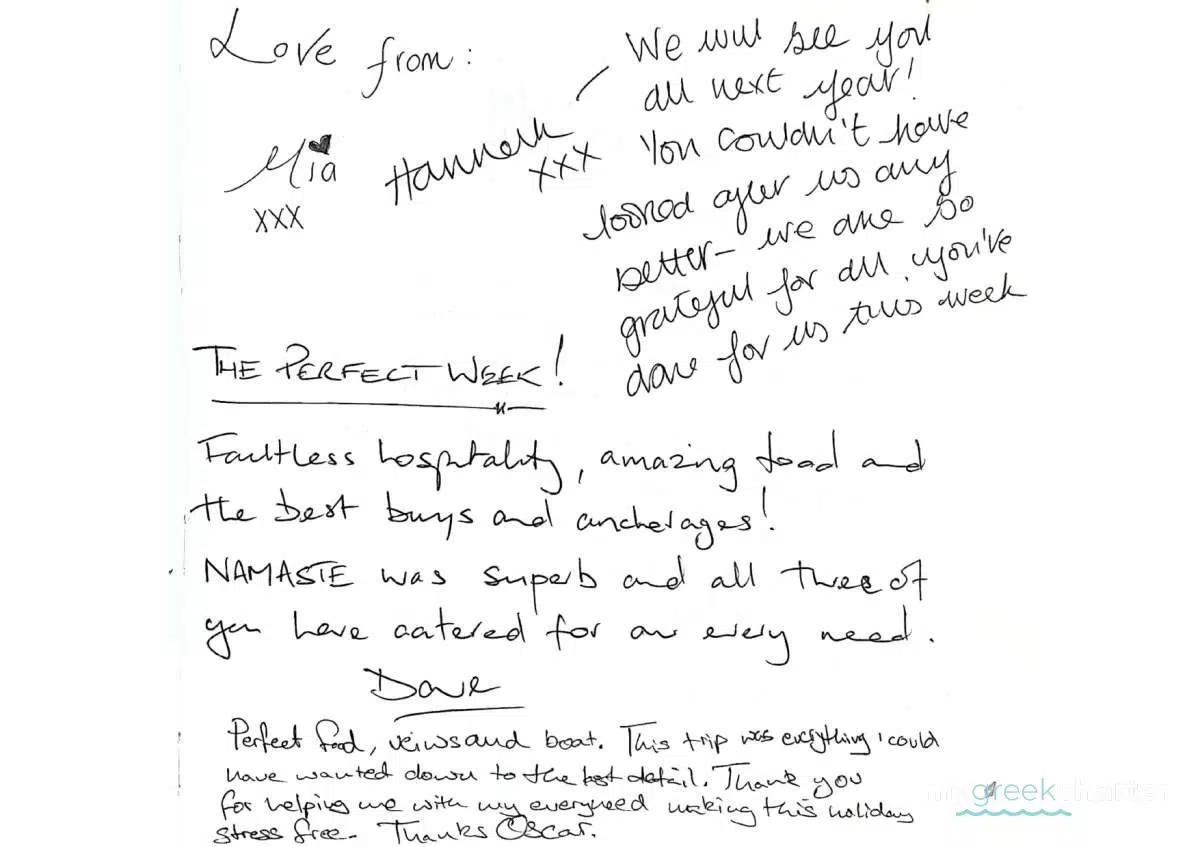 Love from:
Mia
xxx
Hannah
xxx
We will see you
all next year!
You couldn't have
looked after us any
better - we are so
grateful for all you've
done for us this week
THE PERFECT WEEK!
Faultless hospitality, amazing food and
the best buys and ancherages!
NAMASTE was superb and all three of
you have catered for our every need.
Dave
Perfect food, veiws and boat. This trip was everything i could
have wanted down to the best detail. Thank you
for helping me with my everyneed making this holiday
stress free. Thanks Oscar.
my greek charter